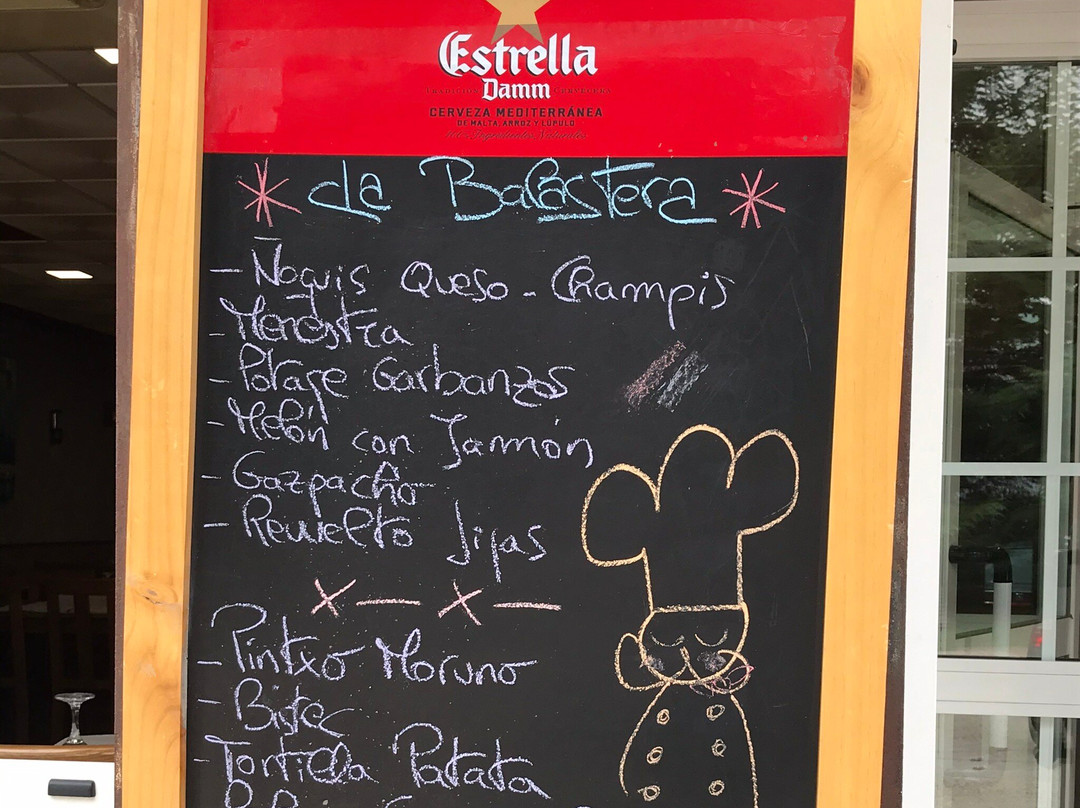 Estrella
Damm
CERVEZA MEDITERRÁNEA
DE MALTA, ARROZ Y LÚPULO
* La Balastera *
- Ñoquis Queso - Champis
- Menestra
- Potage Garbanzos
- Melón con Jamnón
- Gazpacho
- Revuelto Jijas
x — x —
- Pintxo Moruno
- Bistec
- Tortilla Patata